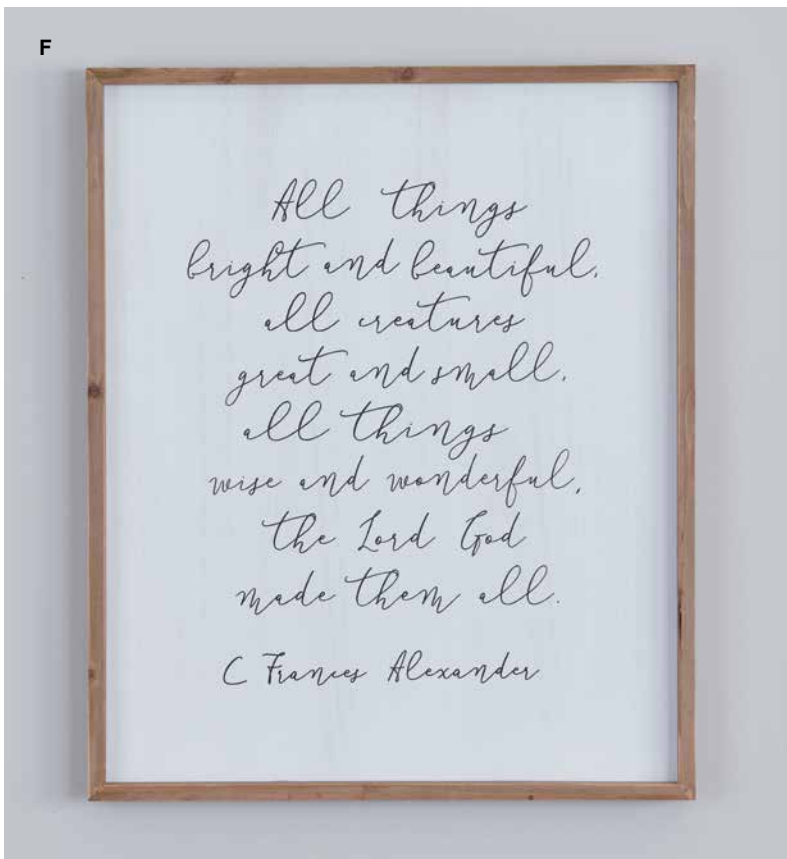 F
All things
bright and beautiful,
all creatures
great and small,
all things
wise and wonderful,
the Lord God
made them all.
C Frances Alexander